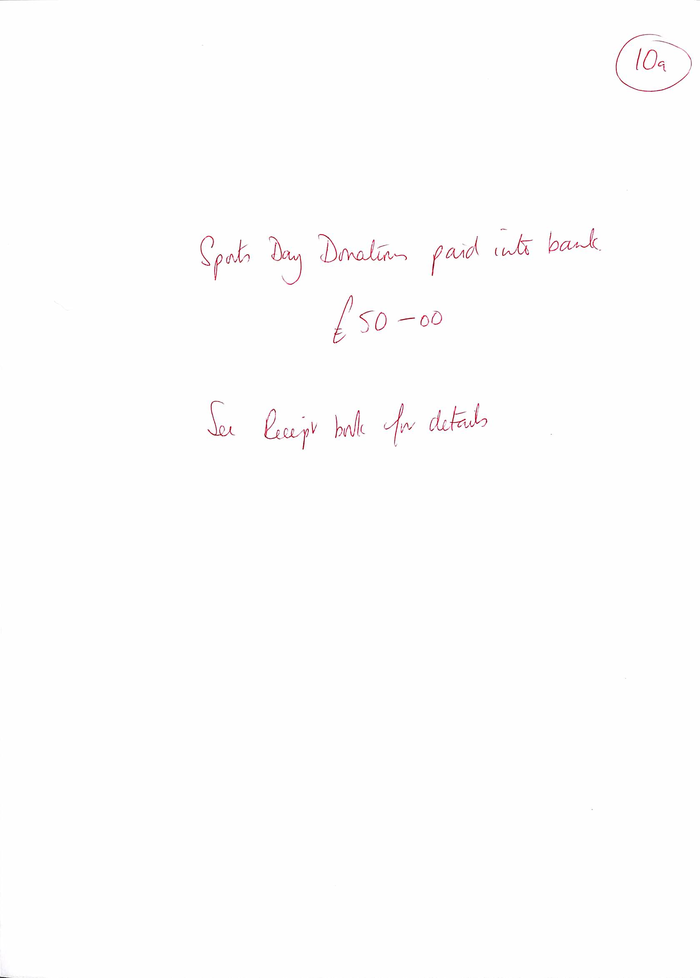 10a
Sports Day Donations paid into bank
£50-00
See Receipt book for details